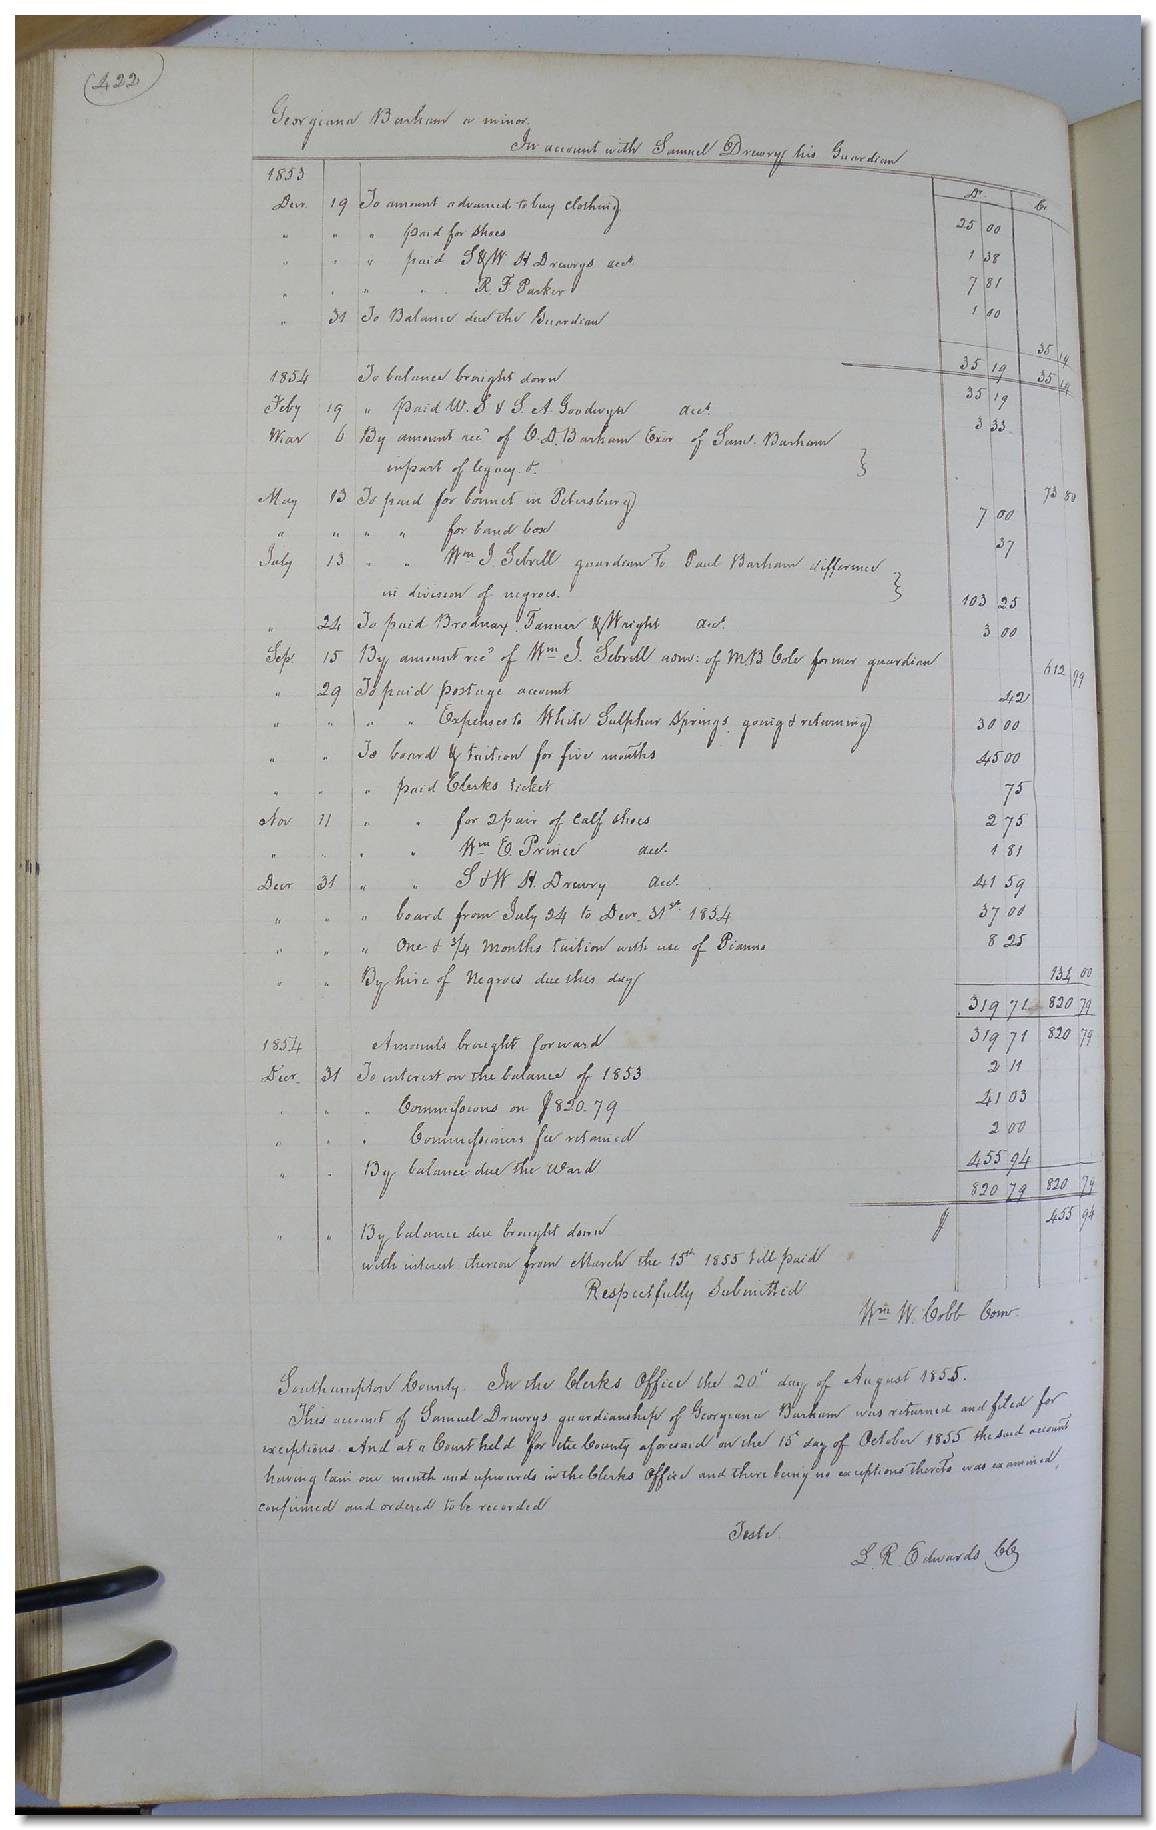 422
Georgiana Barham a minor.
In account with Samuel Drewry his Guardian
Dr. Cr
1853
Decr. 19 To amount advanced to buy clothing 25 00
" " " paid for shoes 1 38
" " " paid S & W H Drewrys acct 7 81
" " " " R. F Parker 1 00
" 31 To Balance due the Guardian 35 19
35 19 35 19
1854 To balance brought down 35 19
Feby 19 " paid W. S & S. A. Goodwyn acct. 3 33
Mar 6 By amount recd of O. D. Barham Exor of Saml. Barham
in part of legacy &. 73 80
May 13 To paid for bonnet in Petersburg 7 00
" " " " for band box 37
July 13 " " Wm J. Sebrell guardian to Paul Barham difference
in division of negroes. 103 25
" 24 To paid Brodnax, Tanner & Wright acct. 3 00
Sep. 15 By amount recd of Wm J. Sebrell adm: of M B Cole former guardian 612 99
" 29 To paid postage account 42
" " " " Expenses to White Sulphur Springs going & returning 30 00
" " To board & tuition for five months 45 00
" " " paid Clerks ticket 75
Nov 11 " " for 2 pair of calf shoes 2 75
" " " " Wm E. Prince acct. 1 81
Decr 31 " " S & W H. Drewry acct. 41 59
" " " board from July 24 to Decr. 31st 1854 37 00
" " " One & 3/4 months tuition with use of Pianno 8 25
" " By hire of Negroes due this day 134 00
319 71 820 79
1854 Amounts brought forward 319 71 820 79
Decr. 31 To interest on the balance of 1853 2 11
" " " Commissions on $820.79 41 03
" " " Commissioners fee retained 2 00
" " By balance due the Ward 455 94
820 79 820 79
" " By balance due brought down $ 455 94
with interest thereon from March the 15th 1855 till paid
Respectfully Submitted
Wm W. Cobb Com.
Southampton County. In the Clerks Office the 20th day of August 1855.
This account of Samuel Drewrys guardianship of Georgeana Barham was returned and filed for
exceptions. And at a Court held for the County aforesaid on the 15th day of October 1855 the said account
having lain one month and upwards in the Clerks Office and there being no exceptions thereto was examined,
confirmed and ordered to be recorded
Teste.
L. R. Edwards CC